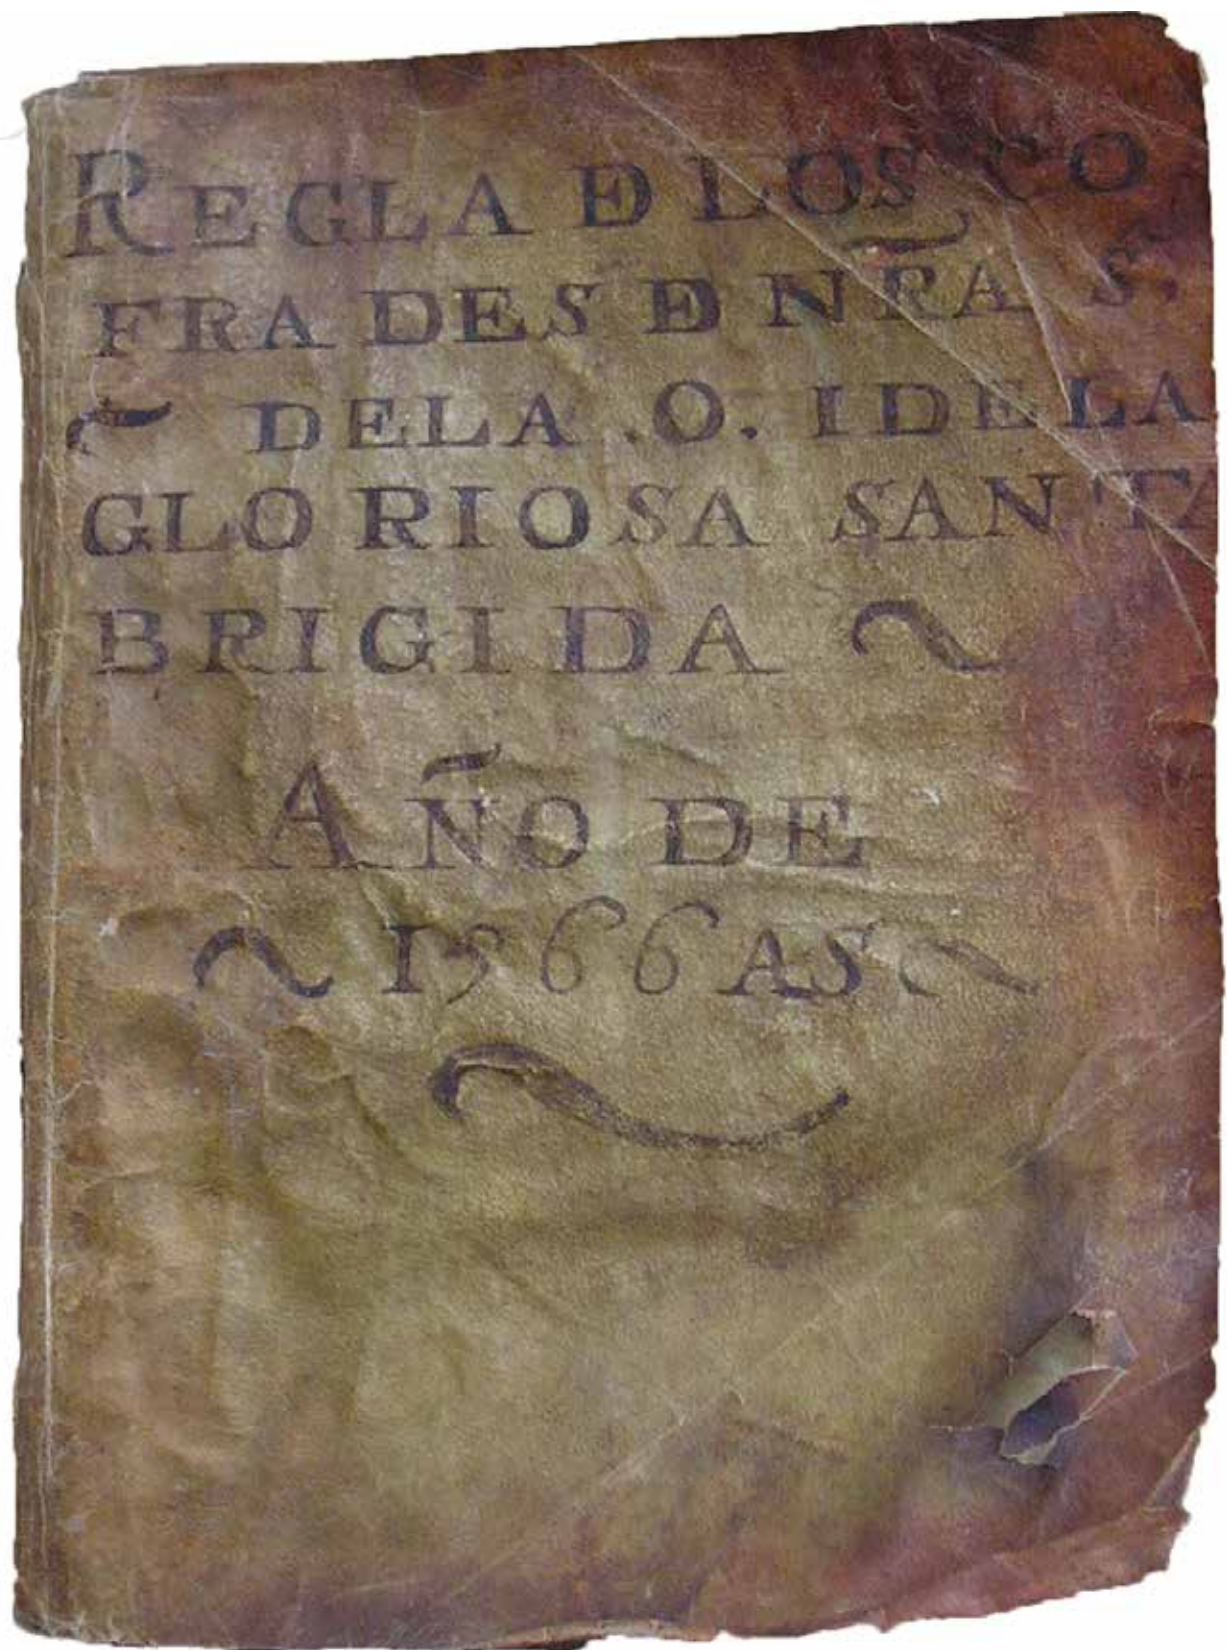 REGLA DE LOS CO
FRADES DE NRA S.
DELA .O. IDELA
GLORIOSA SANTA
BRIGIDA
AÑO DE
1566 AS